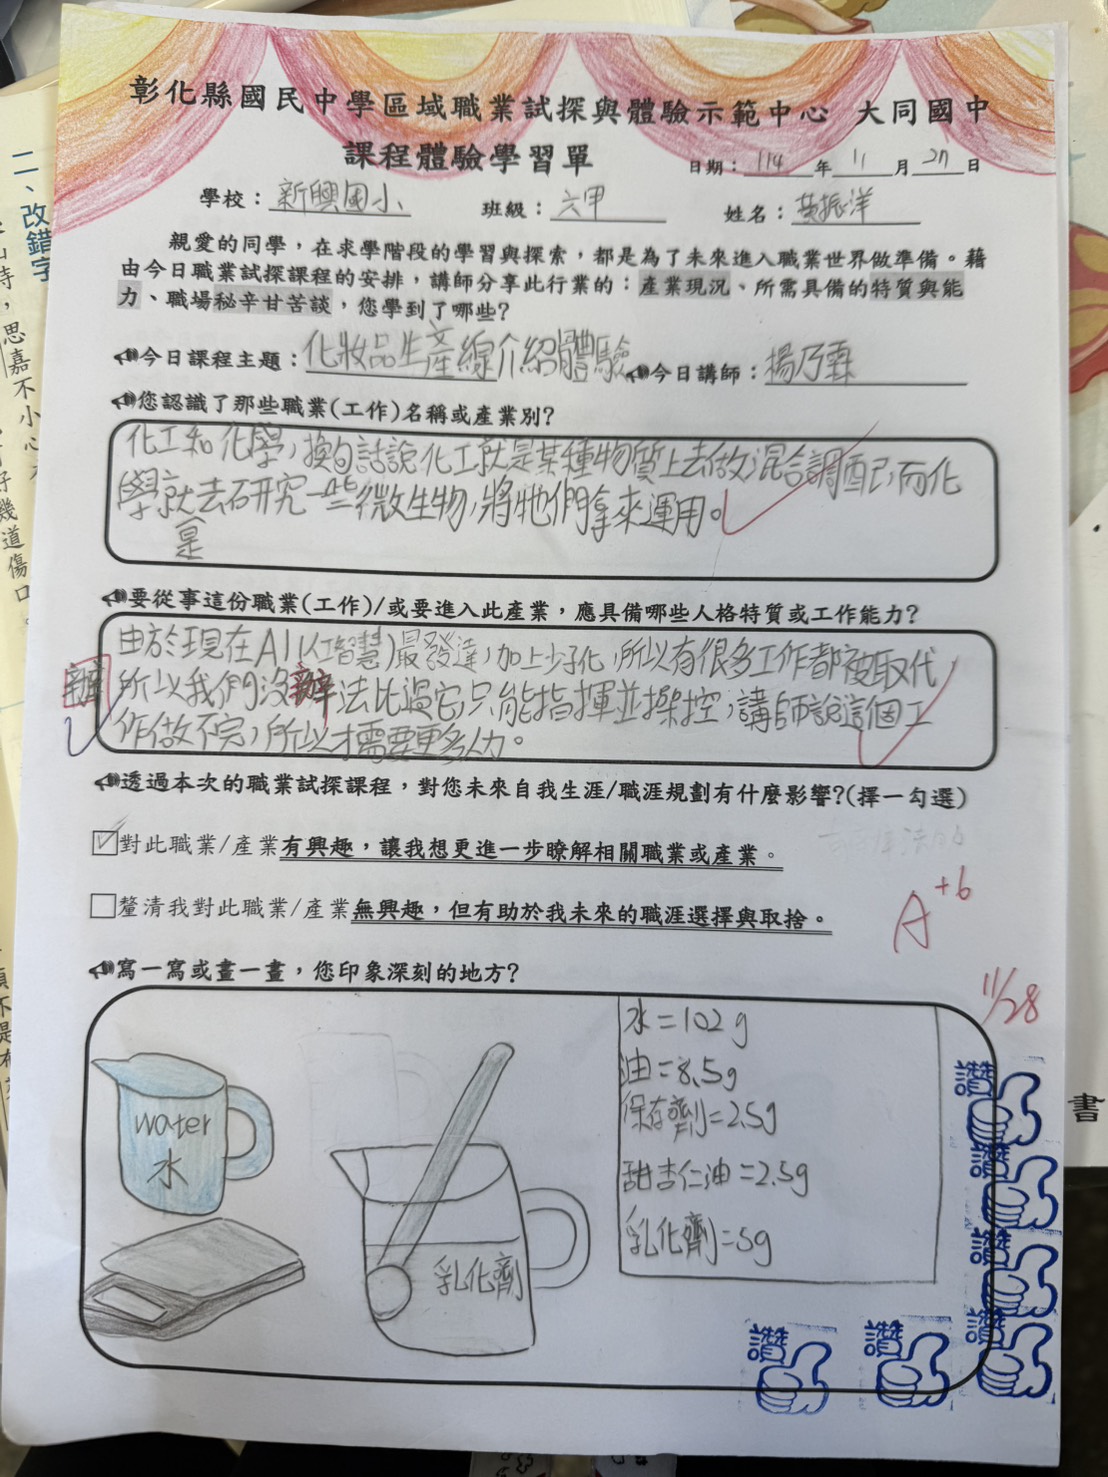 彰化縣國民中學區域職業試探與體驗示範中心 大同國中
課程體驗學習單
日期：114年11月27日
學校：新興國小 班級：六甲 姓名：黃振洋
親愛的同學，在求學階段的學習與探索，都是為了未來進入職業世界做準備。藉
由今日職業試探課程的安排，講師分享此行業的：產業現況、所需具備的特質與能
力、職場秘辛甘苦談，您學到了哪些？
今日課程主題：化妝品生產線介紹體驗 今日講師：楊乃
您認識了那些職業(工作)名稱或產業別？
化工和化學，換句話說化工就是某種物質上去做混合調配，而化
學就去研究一些微生物，將牠們拿來運用。
是
要從事這份職業(工作)/或要進入此產業，應具備哪些人格特質或工作能力？
由於現在AI(人工智慧)最發達，加上少子化，所以有很多工作都被取代
辦 所以我們沒辦法比過它，只能指揮並操控，講師說這個工
作做不完，所以才需要更多人力。
透過本次的職業試探課程，對您未來自我生涯/職涯規劃有什麼影響？(擇一勾選)
☑對此職業/產業有興趣，讓我想更進一步瞭解相關職業或產業。
□釐清我對此職業/產業無興趣，但有助於我未來的職涯選擇與取捨。
A+6
寫一寫或畫一畫，您印象深刻的地方？
11/28
水=102g
油=8.5g
保存劑=2.5g
甜杏仁油=2.5g
乳化劑=5g
water
水
乳化劑
讚
讚
讚
讚
讚
讚
二、改錯字
思嘉不小心
幾道傷口
書